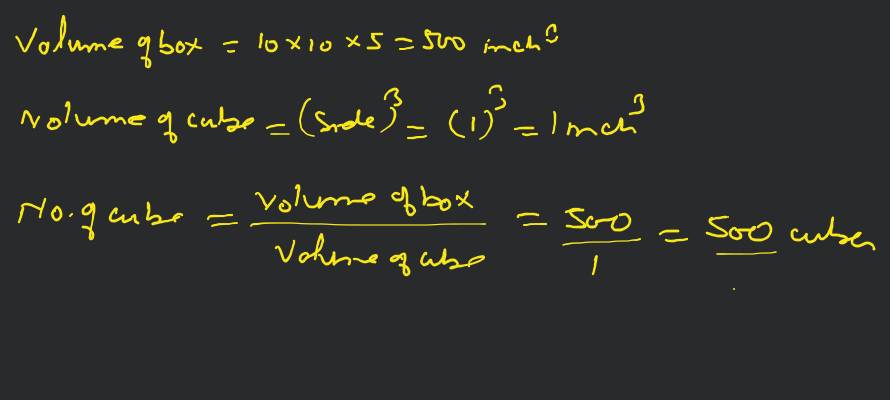 Volume of box = 10 × 10 × 5 = 500 inch³
Volume of cube = (Side)³ = (1)³ = 1 inch³
No. of cube = Volume of box / Volume of cube = 500 / 1 = 500 cubes